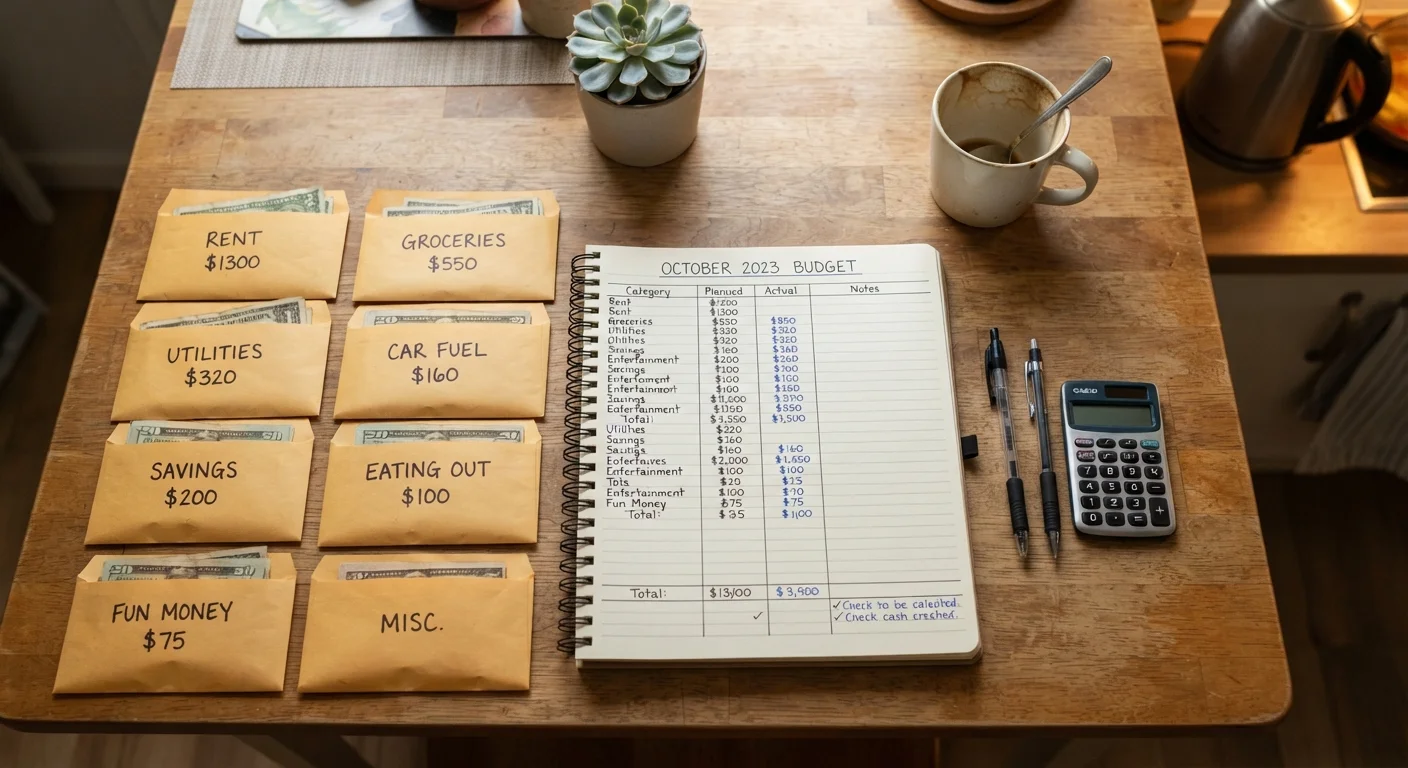 RENT
$1300
GROCERIES
$550
UTILITIES
$320
CAR FUEL
$160
SAVINGS
$200
EATING OUT
$100
FUN MONEY
$75
MISC.
OCTOBER 2023 BUDGET
Category Planned Actual Notes
Rent $1200
Sent $1300
Greceries $550 $850
Utilities $330 $320
Utilities $320 $320
$160 $360
Entertainment $200 $260
Savings $100 $200
Entertoment $100 $160
Entertainment $100 $160
Savings $11,000
Entertainment $1350 $850
Total: $3,550 $3,500
Utilities $220
Savings $160
Savings $160 $160
$2,000 $1,650
Entertainment $100 $100
Tots $20 $25
Entertainment $100 $90
Fun Money $75 $75
Total: $35 $1,100
Total: $13,100 $3,900
✓ ✓ Check to be
✓ Check cash
CASIO